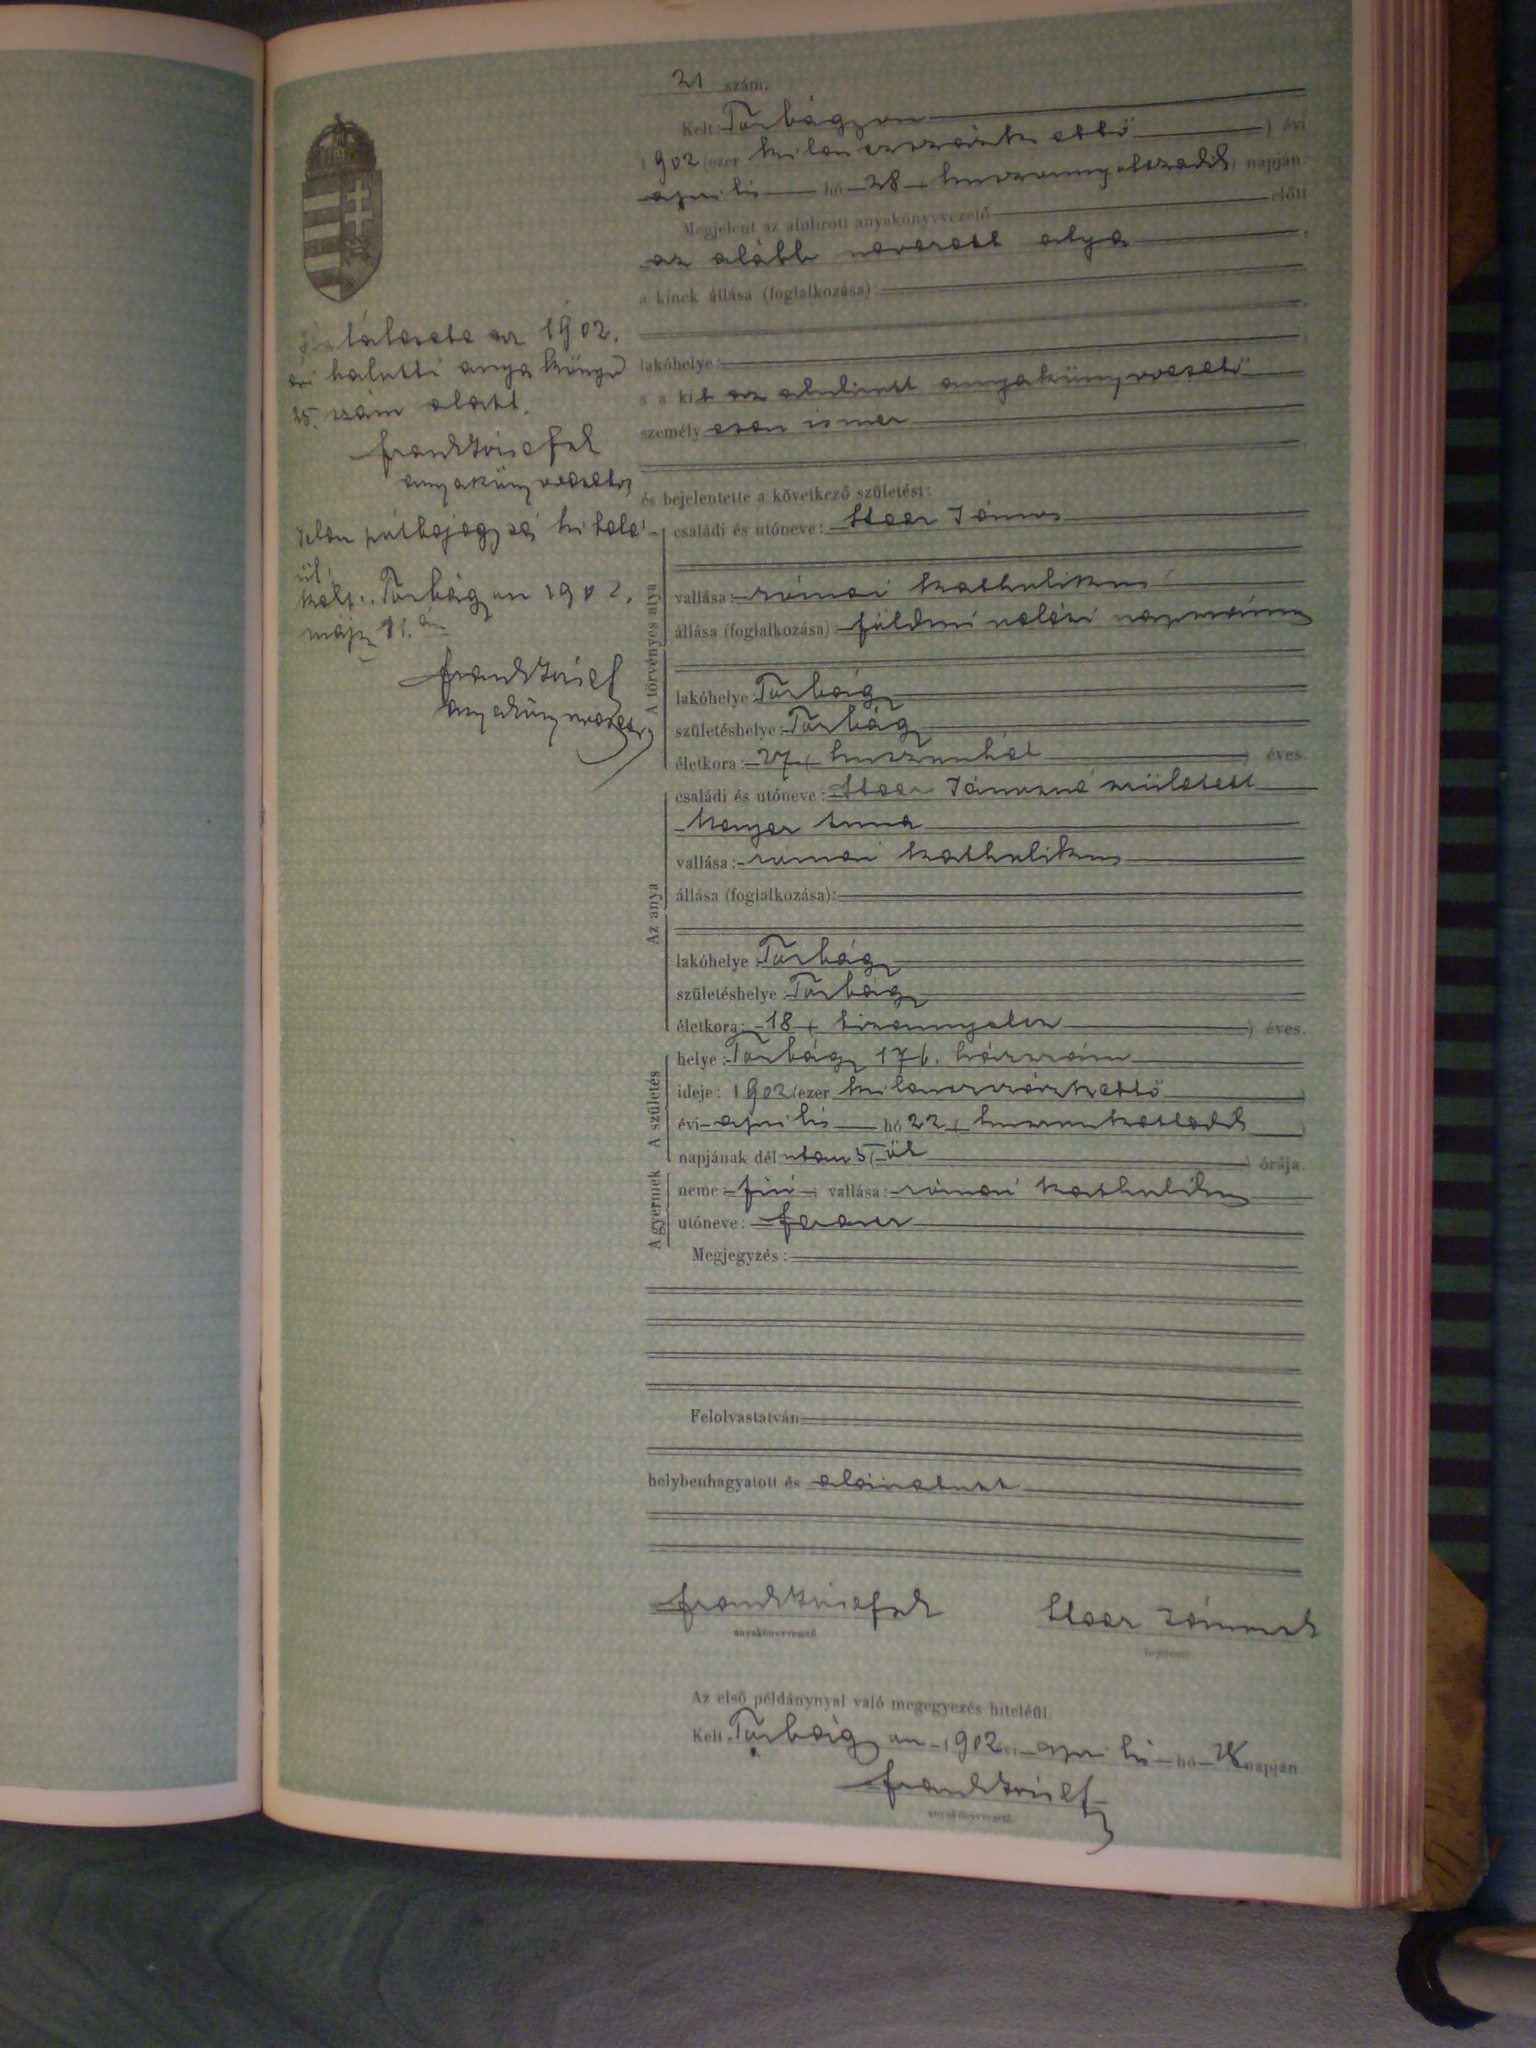 21 szám.
Kelt: Torbágyon
1902 (ezer kilenczszázkettő) évi
április hó 28 (huszonnyolczadik) napján.
Megjelent az alulirott anyakönyvvezető előtt
az alább nevezett atya
a kinek állása (foglalkozása):
lakóhelye:
s a kit az alulirott anyakönyvvezető
személyesen ismer
és bejelentette a következő születést:
A törvényes atya
családi és utóneve: Steer János
vallása: római katholikus
állása (foglalkozása): földmivelési napszámos
lakóhelye: Torbágy
születéshelye: Torbágy
életkora: 27 (huszonhét) éves.
Az anya
családi és utóneve: Steer Jánosné született
Anna
vallása: római katholikus
állása (foglalkozása):
lakóhelye: Torbágy
születéshelye: Torbágy
életkora: 18 (tizennyolcz) éves.
A születés
helye: Torbágy 176. házszám
ideje: 1902 (ezer kilenczszázkettő)
évi április hó 22 (huszonkettedik)
napjának délután 5 (öt) órája.
A gyermek
neme: fiú; vallása: római katholikus
utóneve: Ferencz
Megjegyzés:
Felolvastatván
helybenhagyatott és aláiratott
Frank Józsefsk
anyakönyvvezető
Steer Jánossk
bejelentő
Az első példánynyal való megegyezés hiteléül.
Kelt Torbágyon 1902 évi április hó 28 napján
Frank József
anyakönyvvezető
az 1902.
évi halotti anyakönyv
25. szám alatt.
Frank Józsefsk
anyakönyvvezető
Jelen utóbejegyzés hiteléül.
Kelt: Torbágyon 1902.
máj. 11.én
Frank József
anyakönyvvezető